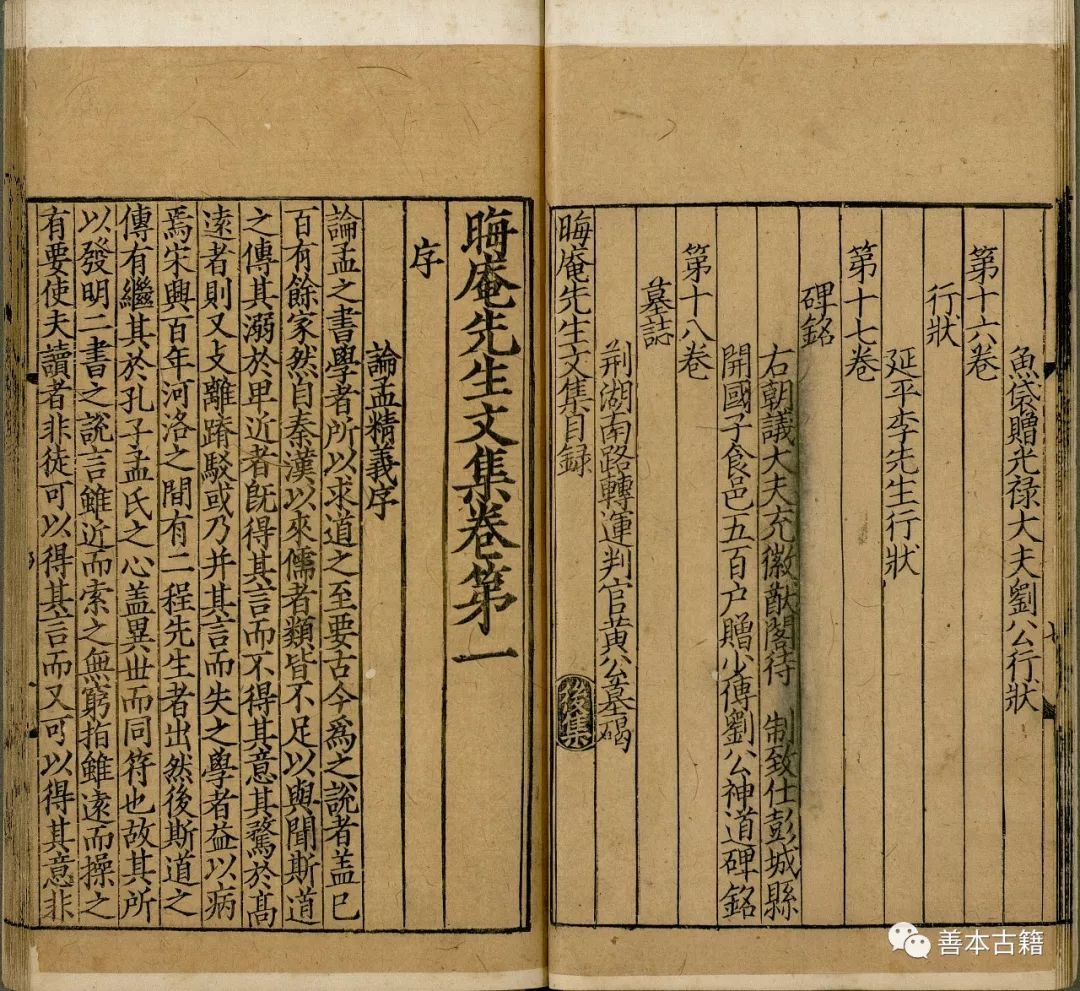 魚袋贈光禄大夫劉公行狀
第十六卷
行狀
延平李先生行狀
第十七卷
碑銘
右朝議大夫充徽猷閣待 制致仕彭城縣
開國子食邑五百户贈少傅劉公神道碑銘
第十八卷
墓誌
荆湖南路轉運判官黄公墓碣
晦庵先生文集目録
後集
晦庵先生文集卷第一
序
論孟精義序
論孟之書學者所以求道之至要古今爲之説者盖已
百有餘家然自秦漢以來儒者類皆不足以與聞斯道
之傳其溺於卑近者既得其言而不得其意其騖於髙
逺者則又支離踳駁或乃并其言而失之學者益以病
焉宋興百年河洛之間有二程先生者出然後斯道之
傳有繼其於孔子孟氏之心盖異世而同符也故其所
以發明二書之説言雖近而索之無窮指雖逺而操之
有要使夫讀者非徒可以得其言而又可以得其意非
七
善本古籍